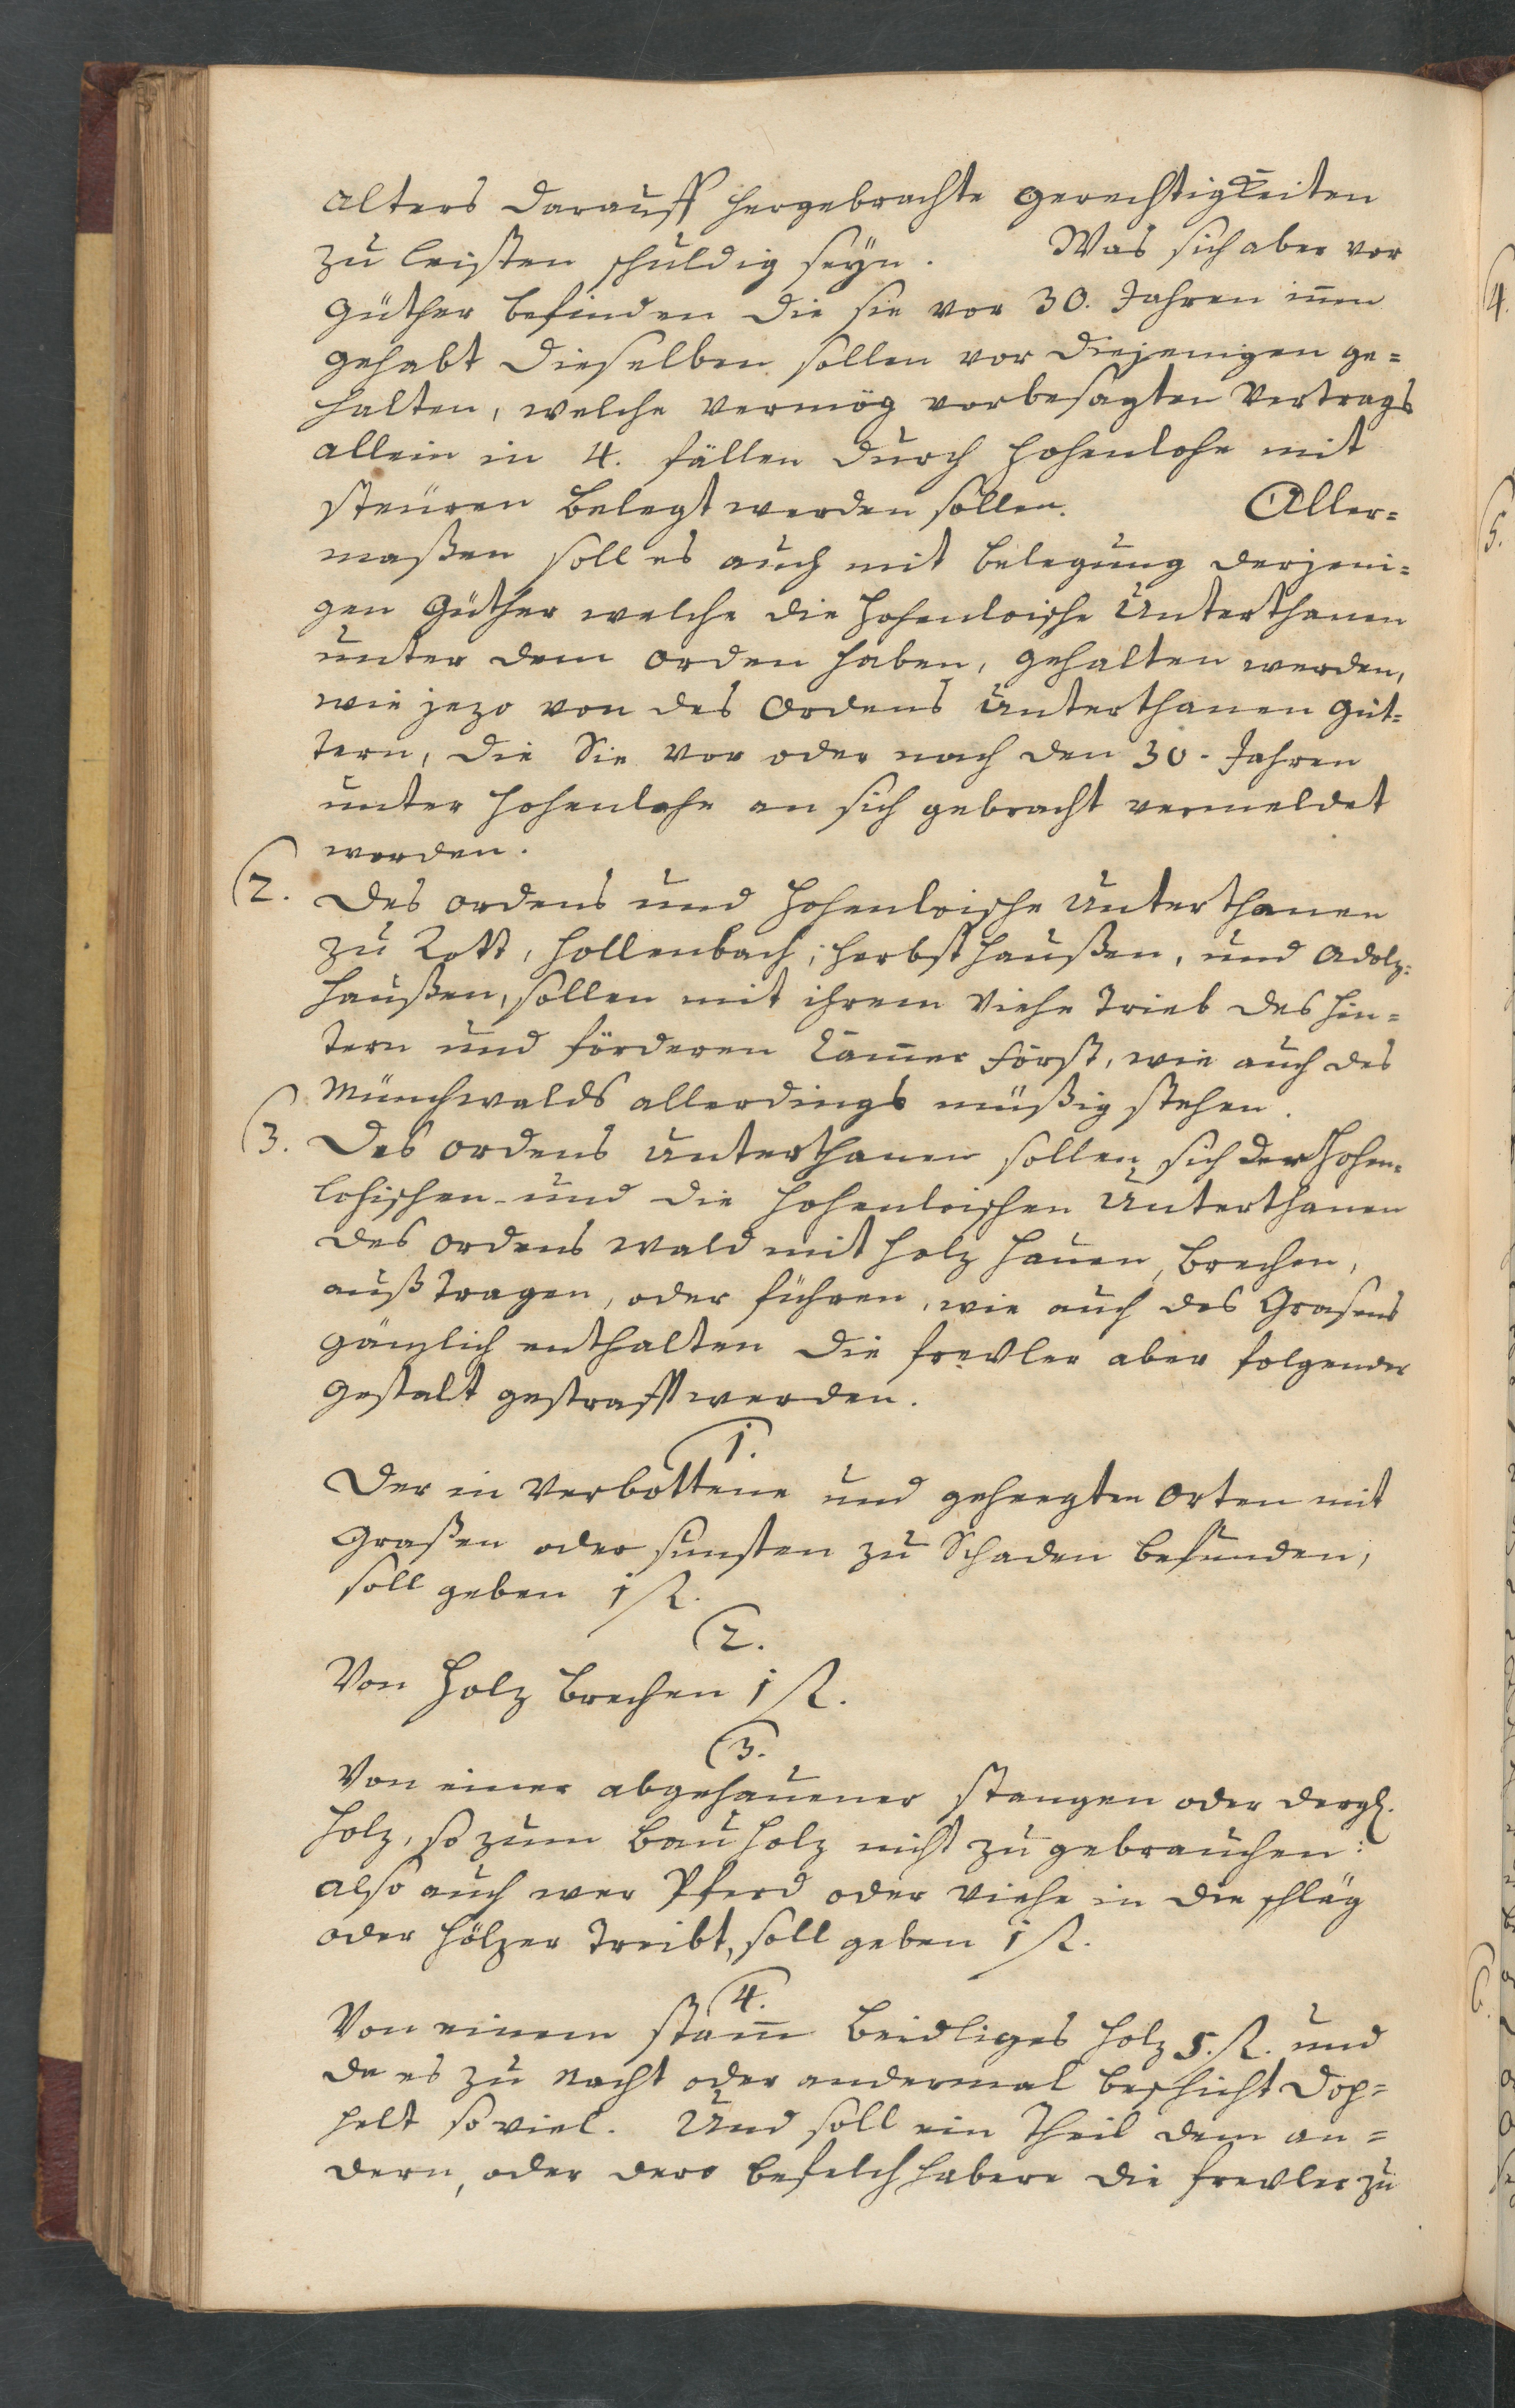 alters darauff hergebrachte gerechtigkeiten
zu leisten schuldig seyn. Was sich aber vor
Güther befinden die sie vor 30. Jahren iñen
gehabt dieselben sollen vor diejenigen ge=
halten, welche vermög vorbesagten Vertrags
allein in 4. fällen durch Hohenlohe mit
steüren belegt werden sollen. Aller=
maßen soll es auch mit belegung derjeni=
gen Güther welche die Hohenloische Unterthanen
unter dem orden haben, gehalten werden,
wie jezo von des Ordens Unterthanen Güt=
tern, die Sie vor oder nach den 30. Jahren
unter Hohenlohe an sich gebracht vermeldet
worden.
2. Des ordens und Hohenloische Unterthanen
zu Rott, Hollenbach, Herbsthaußen, und Adolz=
haußen, sollen mit ihrem Viehe Trieb des hin=
tern und förderen Cam̃er Forst, wie auch des
Münchwalds allerdings müßig stehen.
3. Des ordens Unterthanen sollen sich der Hohen=
lohischen- und die Hohenloischen Unterthanen
des Ordens Wald mit holz hauen, brechen,
auß tragen, oder führen, wie auch des Grasens
gänzlich enthalten die frevler aber folgender
gestalt gestrafft werden.
1.
Der in Verbottene und geheegten Orten mit
Graßen oder sunsten zu Schaden befunden,
soll geben 1 fl.
2.
Von Holz brechen 1 fl.
3.
Von einer abgehauener stangen oder dergl.
holz, so zum Bauholz nicht zu gebrauchen:
also auch wer Pferd oder Viehe in die schläg
oder hölzer treibt, soll geben 1 fl.
4.
Von einem stam̃ beidliges holz 5. fl. und
da es zu Nacht oder andermal beschicht dop=
pelt so viel. Und soll ein Theil dem an=
dern, oder dero befelchhabere die frevler zu
4.
5.
6.